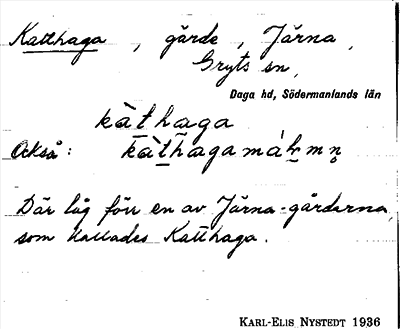 Katthaga, gärde, Järna,
Gryts sn,
Daga hd, Södermanlands län
kàthaga
Också: kàthagamáḵmn̥
Där låg förr en av Järna-gårdarna,
som kallades Katthaga.
KARL-ELIS NYSTEDT 1936